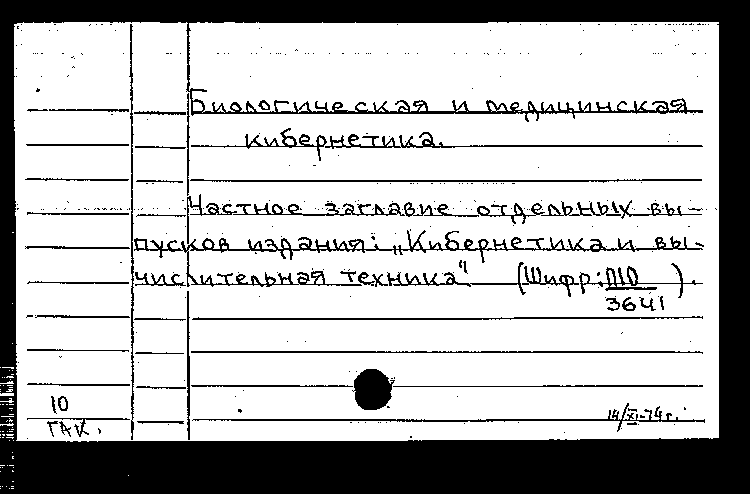 Биологическая и медицинская
кибернетика.
Частное заглавие отдельных вы-
пусков издания: „Кибернетика и вы-
числительная техника“. (Шифр: П10
3641).
10
ГАК.
14/XI-74 г.